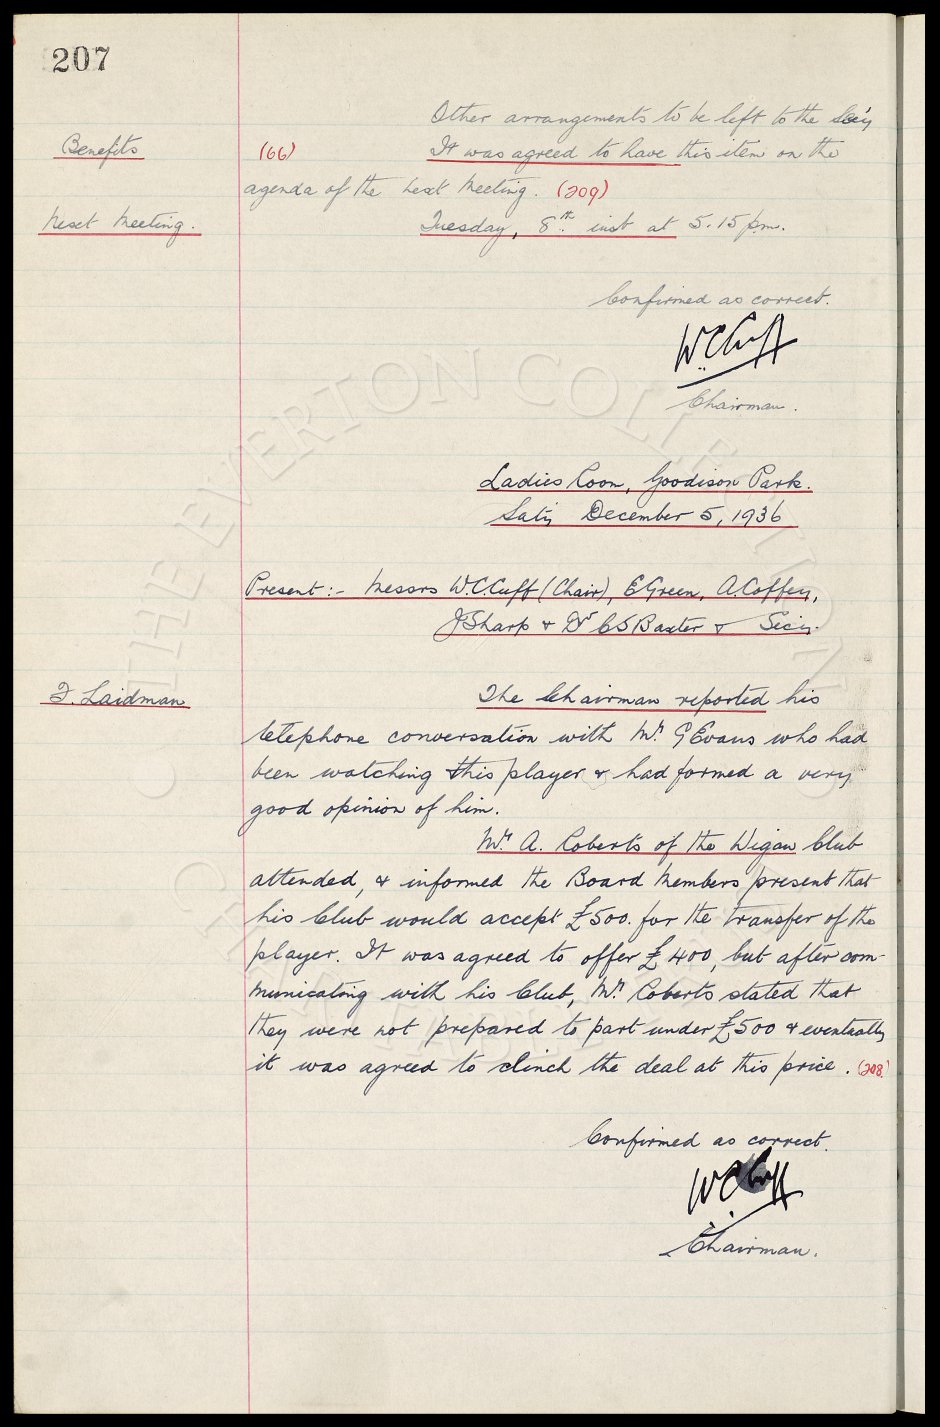 207
Other arrangements to be left to the Sec'y
Benefits (66) It was agreed to have this item on the
agenda of the next meeting. (209)
Next Meeting. Tuesday, 8th. inst at 5.15 p.m.
Confirmed as correct.
W.C. Cuff
Chairman.
© THE EVERTON COLLECTION
Ladies Room, Goodison Park.
Sat'y December 5, 1936
Present :- Messrs W.C. Cuff (Chair), E Green, A. Coffey,
J Sharp & Dr C S Baxter & Sec'y.
F. Laidman The Chairman reported his
telephone conversation with Mr. G Evans who had
been watching this player & had formed a very
good opinion of him.
Mr. A. Roberts of the Wigan Club
attended, & informed the Board Members present that
his Club would accept £500. for the transfer of the
player. It was agreed to offer £400, but after com-
municating with his Club, Mr. Roberts stated that
they were not prepared to part under £500 & eventually
it was agreed to clinch the deal at this price. (208)
Confirmed as correct.
W C Cuff
Chairman.